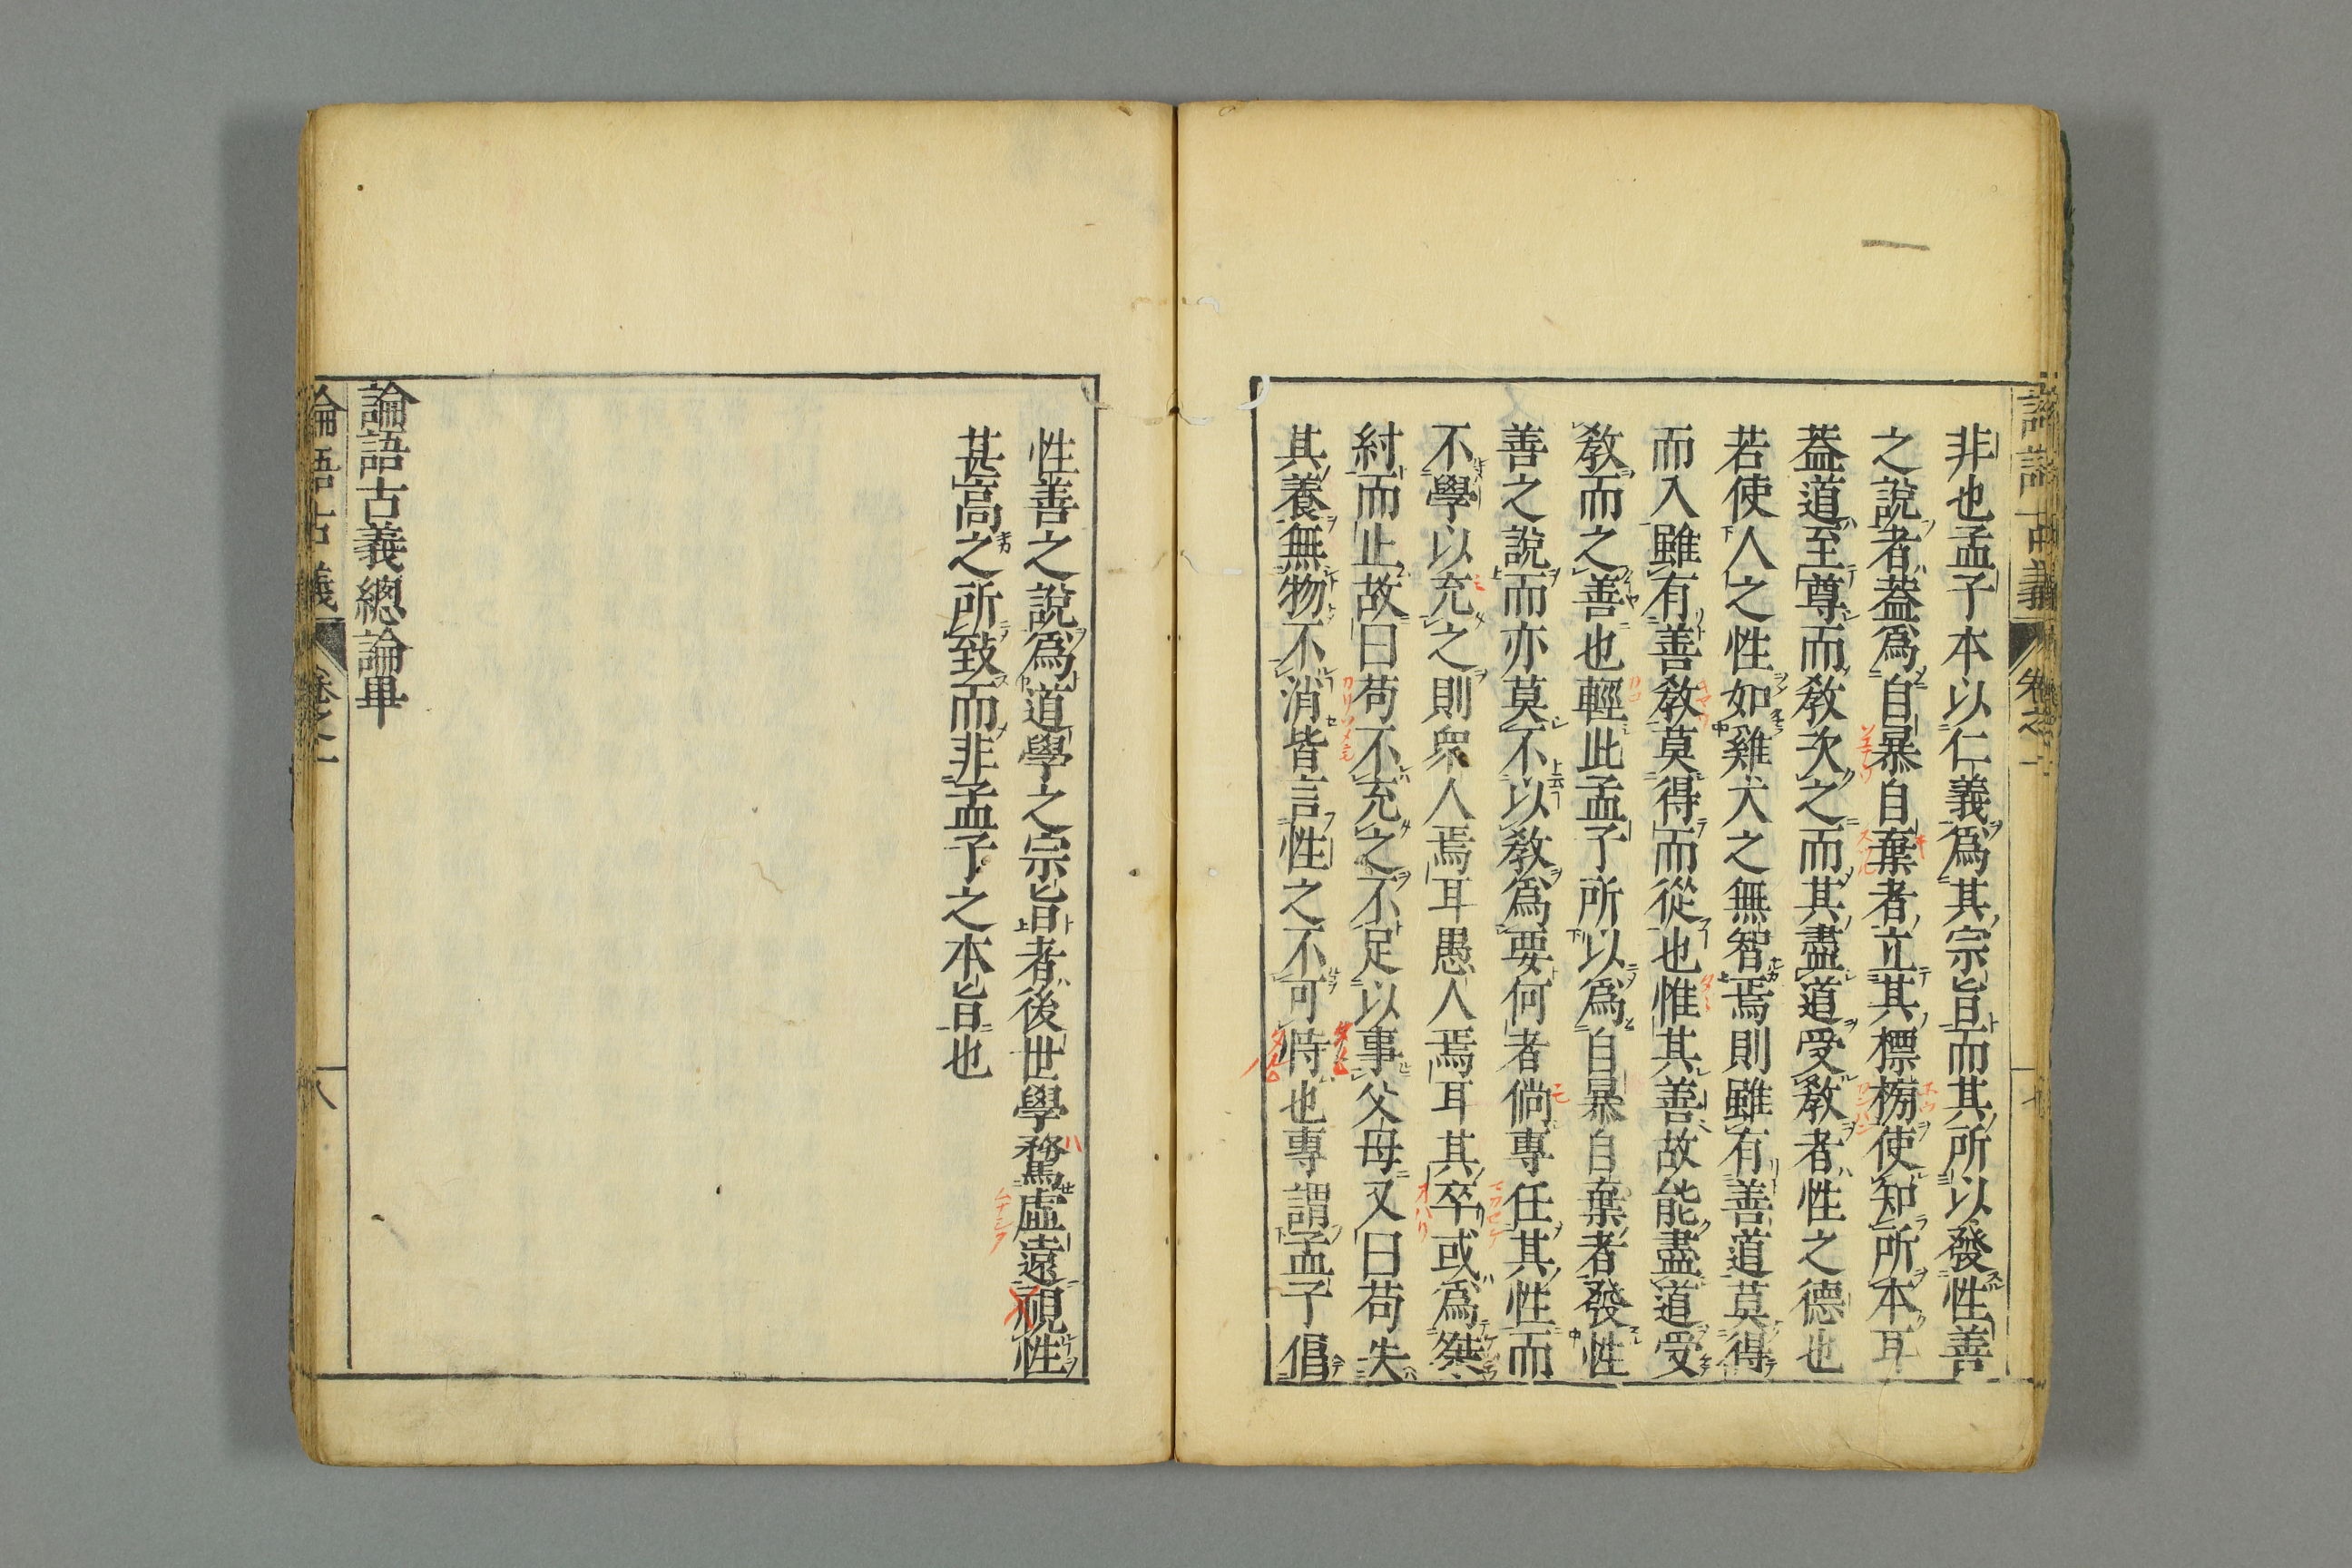 非也孟子本以仁義爲其宗旨而其所以發性善
之說者蓋爲自暴自棄者立其標榜使知所本耳
蓋道至尊而敎次之而其盡道受敎者性之德也
若使人之性如雞犬之無智焉則雖有善道莫得
而入雖有善敎莫得而從也惟其善故能盡道受
敎而之善也輕此孟子所以爲自暴自棄者發性
善之說而亦莫不以敎爲要何者倘專任其性而
不學以充之則衆人焉耳愚人焉耳其卒或爲桀
紂而止故曰苟不充之不足以事父母又曰苟失
其養無物不消皆言性之不可恃也專謂孟子倡
性善之說爲道學之宗旨者後世學騖虛遠視性
甚高之所致而非孟子之本旨也
論語古義總論畢
論語古義
卷之一
八